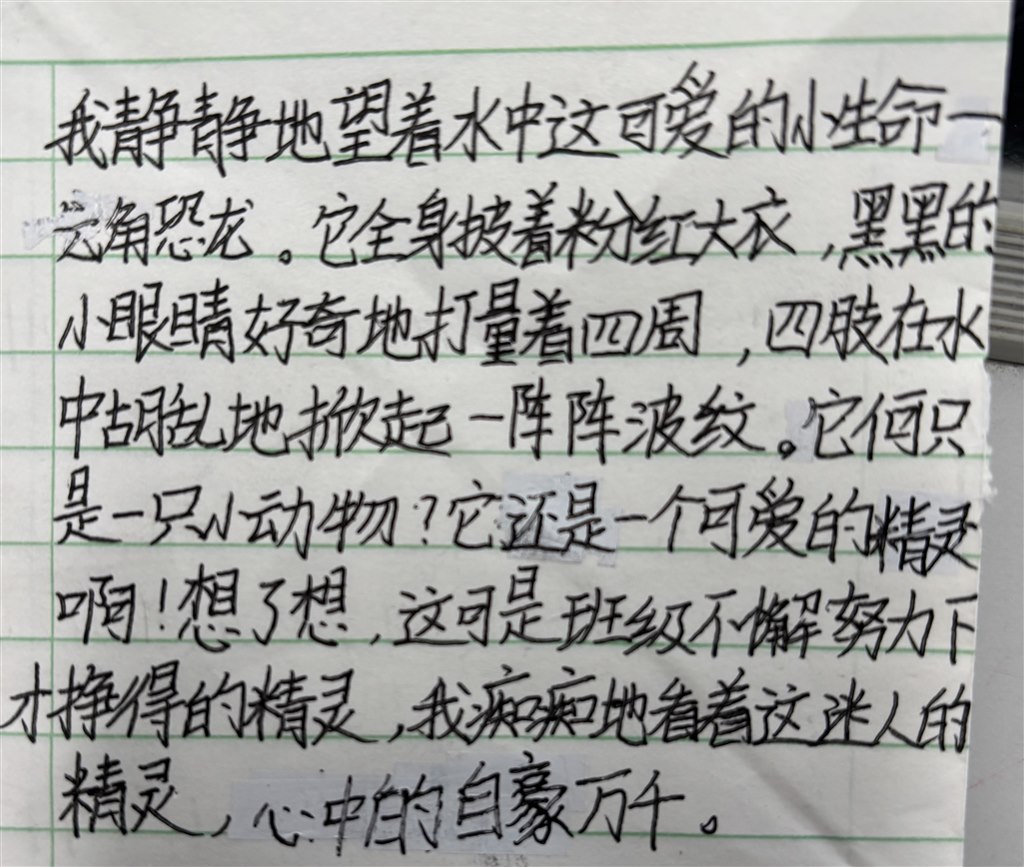 我静静地望着水中这可爱的小生命一
六角恐龙。它全身披着粉红大衣，黑黑的
小眼睛好奇地打量着四周，四肢在水
中胡乱地掀起一阵阵波纹。它何只
是一只小动物？它还是一个可爱的精灵
啊！想了想，这可是班级不懈努力下
才挣得的精灵，我痴痴地看着这迷人的
精灵，心中的自豪万千。